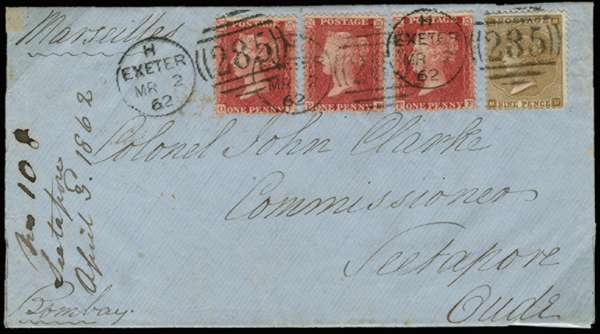 Marseilles
H
EXETER
MR 2
62
285
POSTAGE
ONE PENNY
POSTAGE
ONE PENNY
MR
62
POSTAGE
ONE PENNY
H
EXETER
MR 2
62
POSTAGE
285
NINE PENCE
Colonel John Clarke
Commissioner
Seetapore
Oude
No 108
Seetapore
April 9. 1862
Bombay.